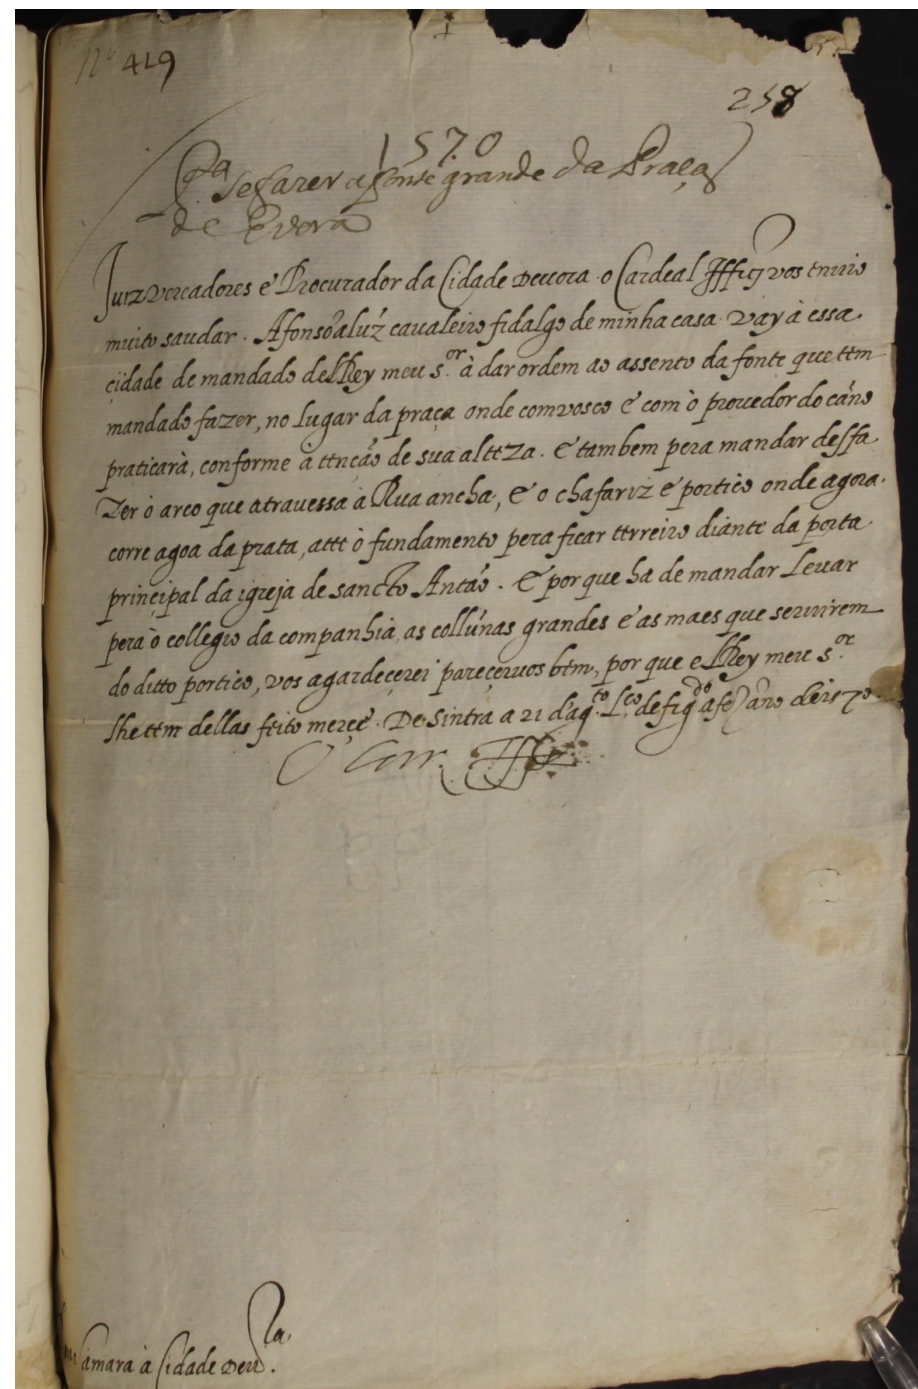 Nº 419
258
1570
Pª se fazer a fonte grande da Praça
de Evora
Juiz Vereadores e Procurador da Cidade Deuora o Cardeal Iffte vos enuio
muito saudar. Afonso aluz caualeiro fidalgo de minha casa vay à essa
çidade de mandado delRey meu s.or à dar ordem ao assento da fonte que tem
mandado fazer, no lugar da praça onde comvosco e com ò prouedor do cano
praticarà, conforme à tenção de sua alteza. E tambem pera mandar desfa
zer ò arco que atravessa à Rua ancha, e o chafariz e portico onde agora
corre agoa da prata, atte ò fundamento pera ficar terreiro diante da porta
prinçipal da igreja de sancto Antão. E por que ha de mandar levar
pera ò collegio da companhia, as collunas grandes e as maes que servirem
do ditto portico, vos agardeçerei pareçervos bem, por que elRey meu s.or
lhe tem dellas feito merçe. De Sintra a 21 d'ag.to L.co de fig.do a fez ano de 1570
O Car. Iffte
Camara à Cidade Deu.ra